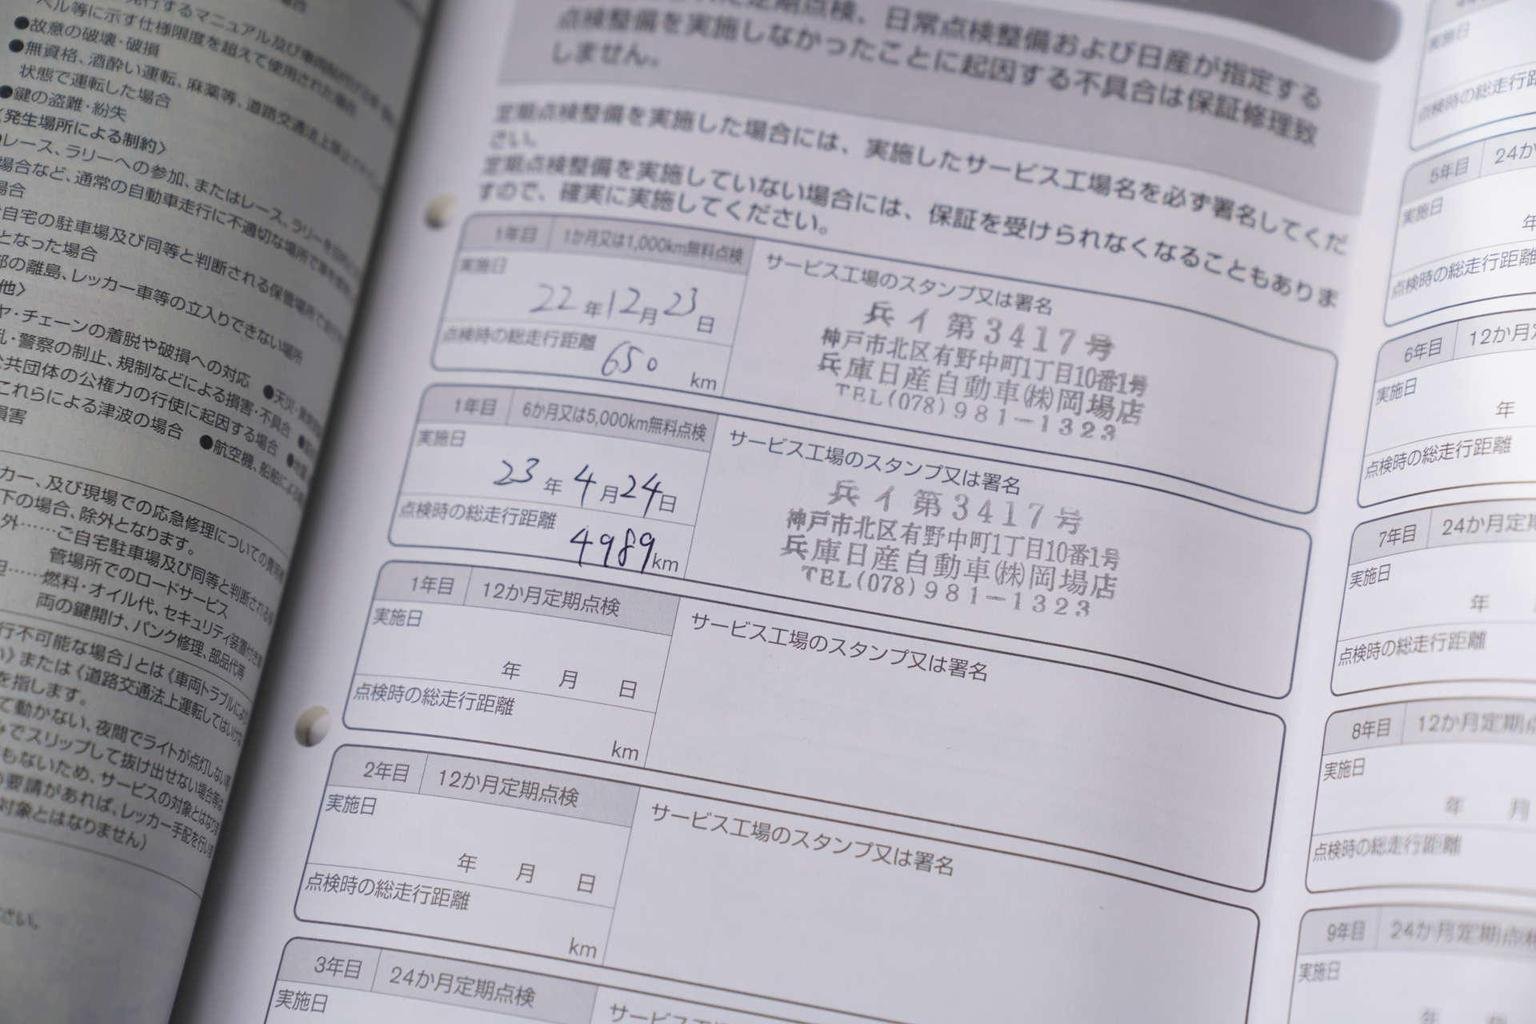 ベル等に示す仕様限度を超えて使用された場合
●故意の破壊・破損
●無資格、酒酔い運転、麻薬等、道路交通法上禁止
状態で運転した場合
●鍵の盗難・紛失
〈発生場所による制約〉
レース、ラリーへの参加、またはレース、ラリーを
場合など、通常の自動車走行に不適切な場所で
場合
自宅の駐車場及び同等と判断される保管場所で
となった場合
部の離島、レッカー車等の立入りできない場所
他〉
ヤ・チェーンの着脱や破損への対応 ●天災
乱・警察の制止、規制などによる損害・不具合
公共団体の公権力の行使に起因する場合
これらによる津波の場合 ●航空機、船舶による
損害
カー、及び現場での応急修理についての費用
下の場合、除外となります。
外……ご自宅駐車場及び同等と判断される
管場所でのロードサービス
……燃料・オイル代、セキュリティ装置付き
両の鍵開け、パンク修理、部品代等
行不可能な場合」とは《車両トラブルにより
い》または《道路交通法上運転してはいけな
を指します。
て動かない、夜間でライトが点灯しない
みでスリップして抜け出せない場合等は
もないため、サービスの対象とはなり
要請があれば、レッカー手配を行い
対象とはなりません）
さい。
定期点検、日常点検整備および日産が指定する
点検整備を実施しなかったことに起因する不具合は保証修理致
しません。
定期点検整備を実施した場合には、実施したサービス工場名を必ず署名してくだ
さい。
定期点検整備を実施していない場合には、保証を受けられなくなることもありま
すので、確実に実施してください。
1年目 1か月又は1,000km無料点検
サービス工場のスタンプ又は署名
実施日
22年12月23日
点検時の総走行距離
650 km
兵イ第3417号
神戸市北区有野中町1丁目10番1号
兵庫日産自動車(株)岡場店
TEL(078)981-1323
1年目 6か月又は5,000km無料点検
サービス工場のスタンプ又は署名
実施日
23年4月24日
点検時の総走行距離
4989km
兵イ第3417号
神戸市北区有野中町1丁目10番1号
兵庫日産自動車(株)岡場店
TEL(078)981-1323
1年目 12か月定期点検
サービス工場のスタンプ又は署名
実施日
年 月 日
点検時の総走行距離
km
2年目 12か月定期点検
サービス工場のスタンプ又は署名
実施日
年 月 日
点検時の総走行距離
km
3年目 24か月定期点検
実施日
サービス工場のスタ
実施日
点検時の総走行距
5年目 24か
実施日
年
点検時の総走行距離
6年目 12か月
実施日
年
点検時の総走行距離
7年目 24か月定
実施日
年
点検時の総走行距離
8年目 12か月定期点
実施日
年 月
点検時の総走行距離
9年目 24か月定期点検
実施日
年 月